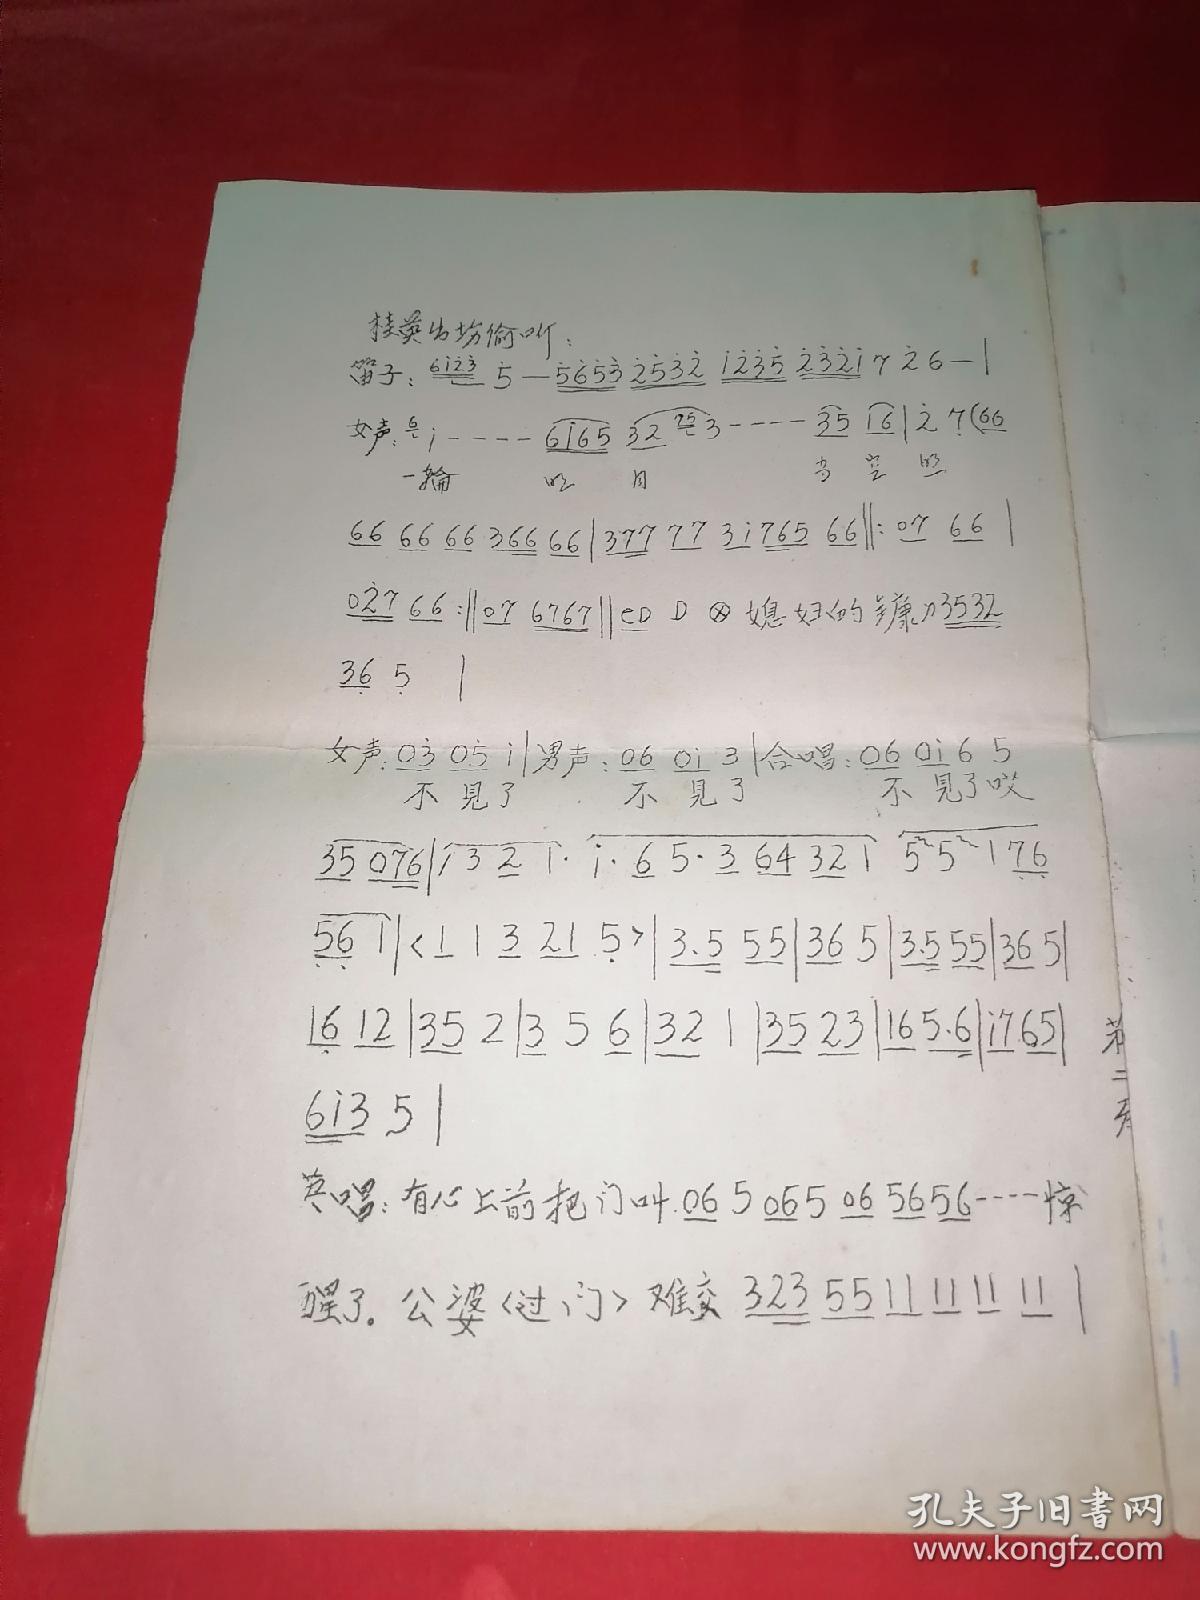 桂英出场偷听：
笛子：6i23 5 — 5653 2532 1235 2321 7 2 6 — |
女声：6 i - - - - 6165 32 25 3 - - - - 35 16 | 2 7 (66
一轮 明 月 当 空 照
66 66 66 366 66 | 377 77 31765 66 ‖: 07 66 |
027 66 :‖ 07 6767 ‖ cD D ⊗ 媳妇的 康 3532
36 5 |
女声：03 05 i | 男声：06 0i 3 | 合唱：06 0i 6 5
不 見了 不 見了 不 見了哎
35 076 | i 3 2 1· i· 6 5· 3 64 32 1 5 5 1 76
56 1 | < 1 1 3 21 5 > | 3.5 55 | 36 5 | 3.5 55 | 36 5 |
16 12 | 35 2 | 3 5 6 | 32 1 | 35 23 | 16 5.6 | i7 65 |
6i3 5 |
英唱：有心上前把门叫 06 5 065 06 5656 - - - - 惊
醒了。公婆<过门>难交 323 55 11 11 11 11 |
第二
孔夫子旧书网
www.kongfz.com